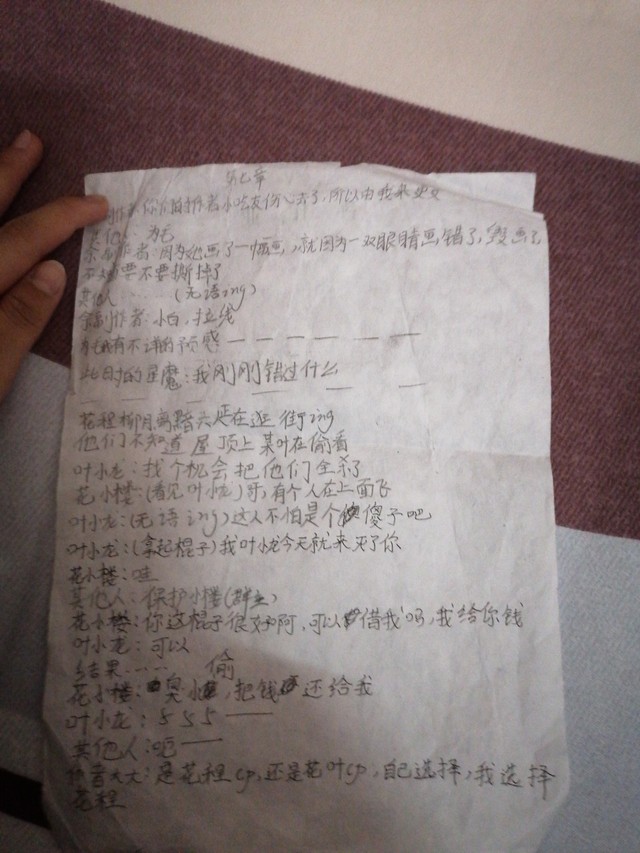 第七章
你们的制作者小吃货伤心去了,所以由我来更文
其他人:为毛
制作者:因为她画了一幅画,就因为一双眼睛画错了,毁画了
不要不要撕掉了
其他人……(无语ing)
制作者:小白,拉线
我有不详的预感——————
此时的星魔:我刚刚错过什么
— — — —
花程柳月离黯六班在逛街ing
他们不知道屋顶上某叶在偷看
叶小龙:找个机会把他们全杀了
花小楼:(看见叶小龙)哥,有个人在上面飞
叶小龙:(无语ing)这人不怕是个傻子吧
叶小龙:(拿起棍子)我叶小龙今天就来灭了你
花小楼:哇
其他人:保护小楼(群主)
花小楼:你这棍子很好啊,可以借我吗,我给你钱
叶小龙:可以
结果…… 偷
花小楼:臭小,把钱还给我
叶小龙:555——
其他人:呃——
大大:是花程cp,还是花叶cp,自己选择,我选择
花程